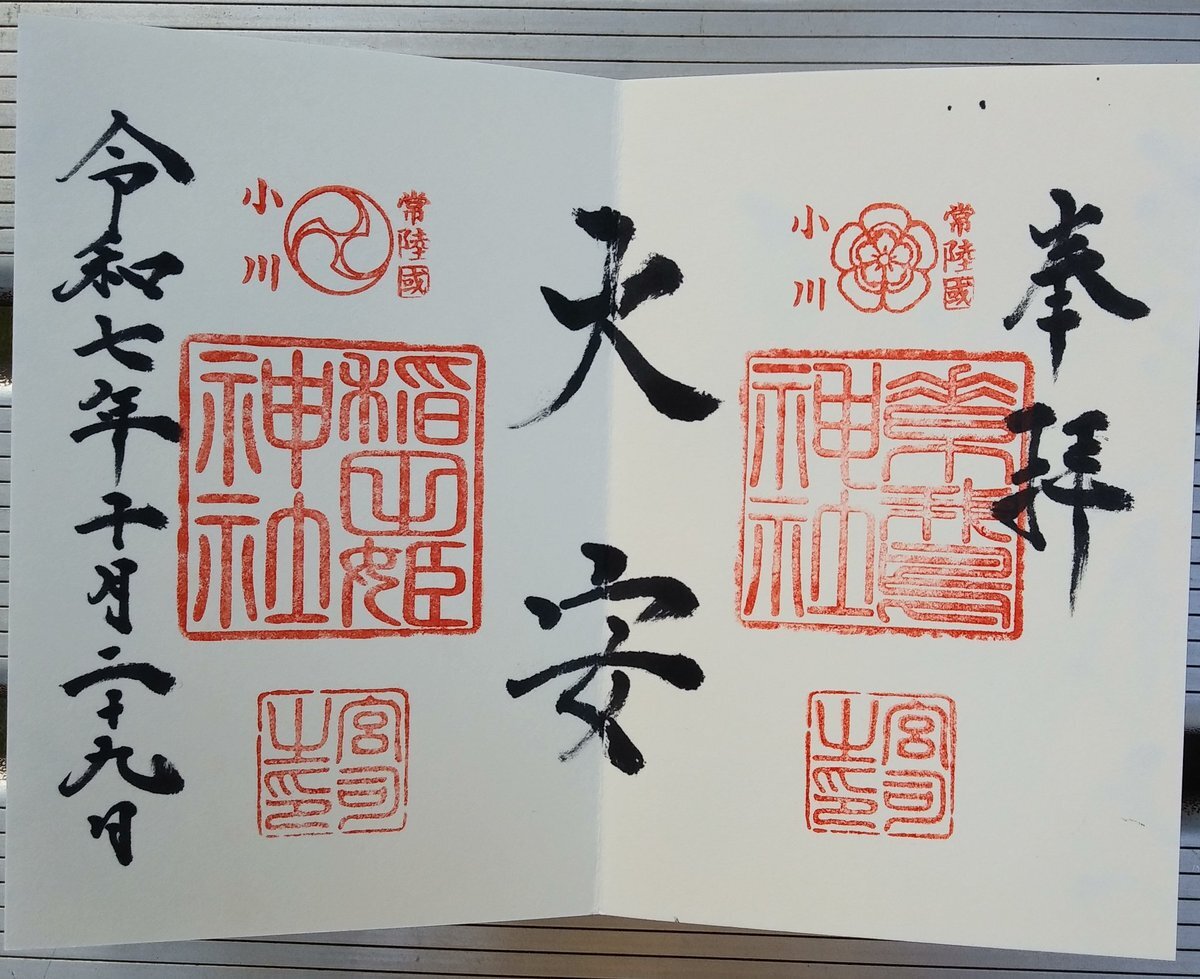 奉拝
常陸國
小川
素鵞
神社
宮司
之印
大安
常陸國
小川
稲田姫
神社
宮司
之印
令和七年十月二十九日